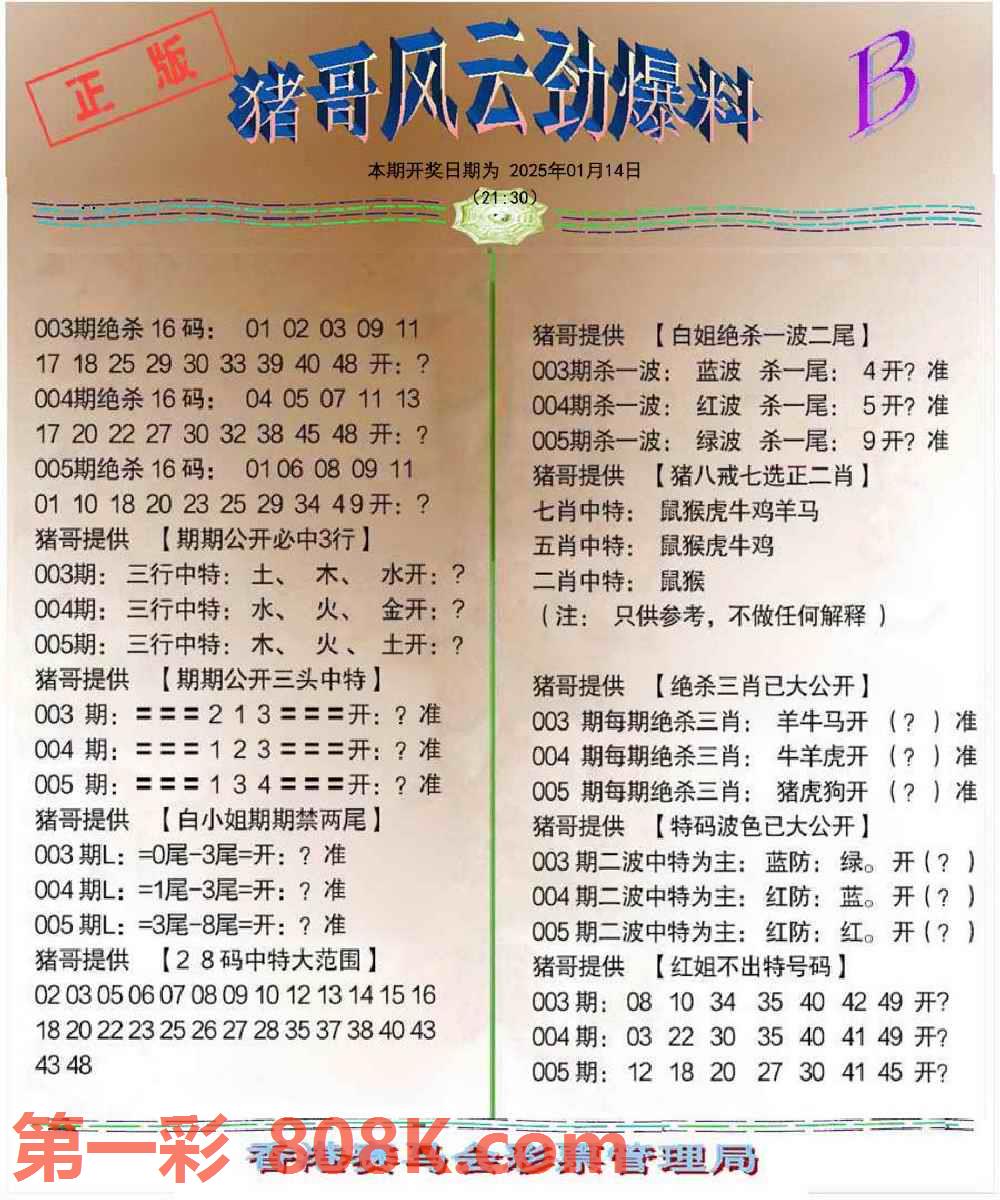 正版
猪哥风云劲爆料
B
本期开奖日期为 2025年01月14日
(21:30)
003期绝杀16码： 01 02 03 09 11
17 18 25 29 30 33 39 40 48 开：?
004期绝杀16码： 04 05 07 11 13
17 20 22 27 30 32 38 45 48 开：?
005期绝杀16码： 01 06 08 09 11
01 10 18 20 23 25 29 34 49开：?
猪哥提供 【期期公开必中3行】
003期：三行中特：土、 木、 水开：?
004期：三行中特：水、 火、 金开：?
005期：三行中特：木、 火、 土开：?
猪哥提供 【期期公开三头中特】
003 期：===2 1 3===开：? 准
004 期：===1 2 3===开：? 准
005 期：===1 3 4===开：? 准
猪哥提供 【白小姐期期禁两尾】
003期L：=0尾-3尾=开：? 准
004期L：=1尾-3尾=开：? 准
005期L：=3尾-8尾=开：? 准
猪哥提供 【28码中特大范围】
02 03 05 06 07 08 09 10 12 13 14 15 16
18 20 22 23 25 26 27 28 35 37 38 40 43
43 48
猪哥提供 【白姐绝杀一波二尾】
003期杀一波： 蓝波 杀一尾： 4开? 准
004期杀一波： 红波 杀一尾： 5开? 准
005期杀一波： 绿波 杀一尾： 9开? 准
猪哥提供 【猪八戒七选正二肖】
七肖中特： 鼠猴虎牛鸡羊马
五肖中特： 鼠猴虎牛鸡
二肖中特： 鼠猴
(注： 只供参考，不做任何解释 )
猪哥提供 【绝杀三肖已大公开】
003 期每期绝杀三肖： 羊牛马开 (? ) 准
004 期每期绝杀三肖： 牛羊虎开 (? ) 准
005 期每期绝杀三肖： 猪虎狗开 (? ) 准
猪哥提供 【特码波色已大公开】
003期二波中特为主：蓝防：绿。开(? )
004期二波中特为主：红防：蓝。开(? )
005期二波中特为主：红防：红。开(? )
猪哥提供 【红姐不出特号码】
003期：08 10 34 35 40 42 49 开?
004期：03 22 30 35 40 41 49 开?
005期：12 18 20 27 30 41 45 开?
第一彩 808K.com
香港赛马会彩票管理局